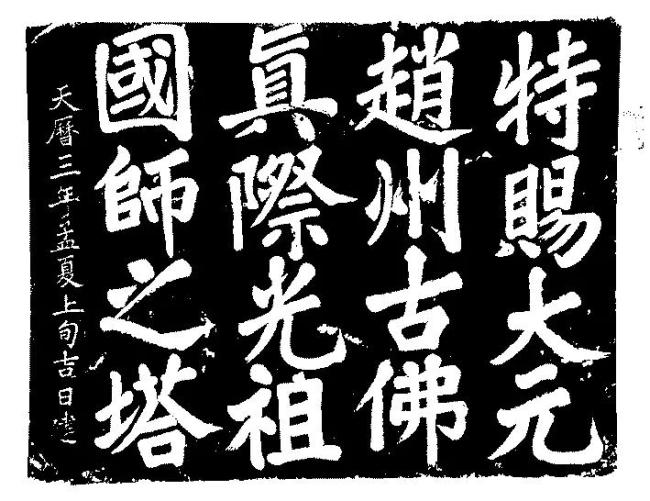 特賜大元
趙州古佛
眞際光祖
國師之塔
天曆三年孟夏上旬吉日建